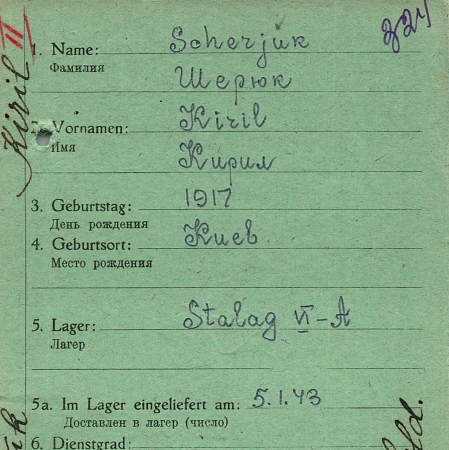 324
Kiril II
1. Name: Scherjuk
Фамилия
Шерюк
2. Vornamen: Kiril
Имя
Кирил
3. Geburtstag: 1917
День рождения
4. Geburtsort: Киев
Место рождения
5. Lager: Stalag VI-A
Лагер
5a. Im Lager eingeliefert am: 5.1.43
Доставлен в лагер (число)
6. Dienstgrad: